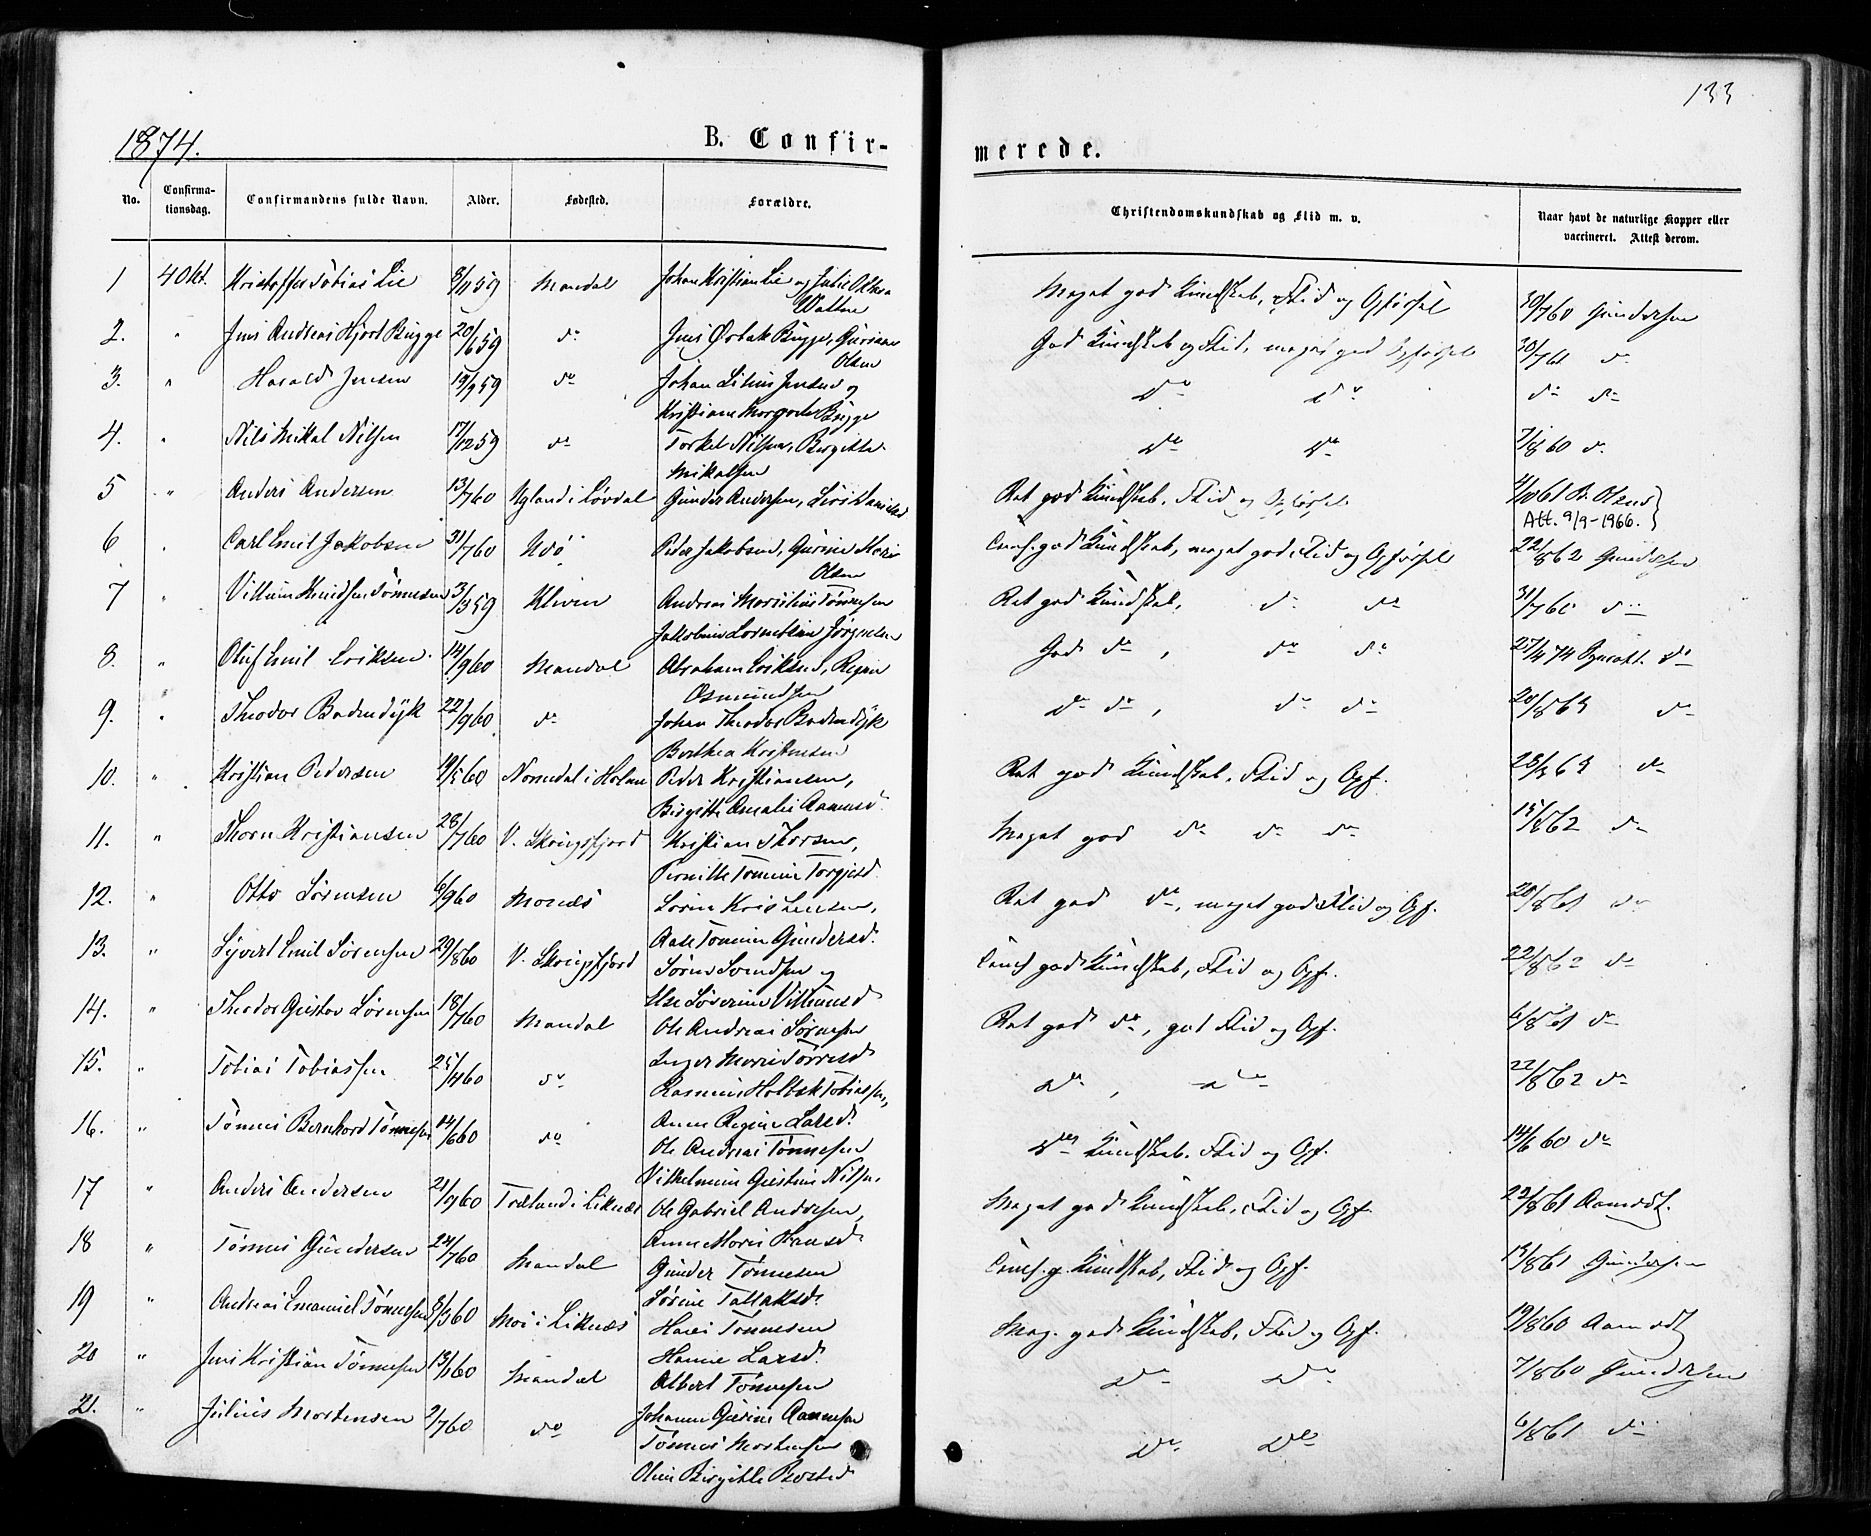 133
1874.
B. Confir-
merede.
No.
Confirma-
tionsdag.
Confirmandens fulde Navn.
Alder.
Fødested.
Forældre.
Christendomskundskab og Flid m. v.
Naar havt de naturlige Kopper eller
vaccineret. Attest derom.
1 4 Okt. Kristoffer Tobias Lie 8/11 59 Mandal Johan Kristian Lie og Julie
Meget god Kundskab, Flid og Opførsel 30/7 60 Gundersen
2. " Jens Andreas Hjort Bugge 20/6 59 do Jens Bugge, Guriane
Olsen
God Kundskab og Flid, meget god Opførsel 30/7 61 do
3. " Harald Jensen 19/9 59 do Johan Jensen og
Kristiane Margrete Bugge
do do do do
4. " Nils Mikal Nilsen 17/12 59 do Torkel Nilsen, Birgitte
Mikalsen
do do 7/8 60 do
5 " Anders Andersen 13/7 60 Ugland i Løvdal Gunder Andersen,
Ret god Kundskab, Flid og Opførsel 61 Olsen
Att. 9/9-1966.
6 " Carl Emil Jakobsen 31/7 60 Udø Peder Jakobsen, Gurine Marie
Olsen
god Kundskab, meget god Flid og Opførsel 22/8 62 Gundersen
7 " Villum Knudsen Tønnesen 3/3 59 Kleven Andreas Tønnesen
Jørgensen
Ret god Kundskab, do do 31/7 60 do
8. " Oluf Emil Eriksen 14/9 60 Mandal Abraham Eriksen, Regine
Osmundsen
God do, do do 27/4 74 do
9. " Theodor Bodendyk 22/9 60 do Johan Theodor Bodendyk
Berthea Kristensen
do do, do do 20/8 63 do
10. " Kristian Pedersen 19/5 60 Nomedal i Holme Peder Kristiansen,
Birgitte Amalie
Ret god Kundskab, Flid og Opf. 63 do
11. " Thorn Kristiansen 28/7 60 V. Skougsfjord Kristian Thorsen,
Pernille Tomine Torgjusd.
Meget god do do do 15/8 62 do
12. " Otto Sørensen 6/9 60 Mones Søren Kristensen,
Aase Tomine Gundersd.
Ret god do, meget god Flid og Opf. 20/8 61 do
13. " Syvert Emil Sørensen 29/8 60 V. Skougsfjord Søren Svendsen og
Else Severine Villumsd
god Kundskab, Flid og Opf. 22/8 62 do
14. " Theodor Gustav Sørensen 18/7 60 Mandal Ole Andreas Sørensen
Inger Marie Torresd
Ret god do, god Flid og Opf. 6/8 61 do
15. " Tobias Tobiassen 25/4 60 do Rasmus Holbek Tobiassen,
Anne Regine Larsd.
do, do 22/8 62 do
16. " Tønnes Bernhard Tønnesen 14/6 60 do Ole Andreas Tønnesen
Vilhelmine Gustine Nilsen
do Kundskab. Flid og Opf. 14/6 60 do
17 " Anders Andersen 21/9 60 Træland i Liknes Ole Gabriel Andersen,
Anne Marie Hansd.
Meget god Kundskab, Flid og Opf. 22/8 61 Aamodt.
18 " Tønnes Gundersen 24/7 60 Mandal Gunder Tønnesen
Sørine Tallaksd.
g. Kundskab, Flid og Opf. 13/8 61 Gundersen
19 " Andreas Emanuel Tønnesen 8/3 60 Moi i Liknes Hans Tønnesen
Hanne Larsd.
Meg. god Kundskab, Flid og Opf. 19/8 60 Aamodt
20 " Jens Kristian Tønnesen 13/1 60 Mandal Albert Tønnesen
Johanne Gurine Aanensen
do do 7/8 60 Gundersen
21. " Julius Mortensen 2/7 60 do Tønnes Mortensen
Oline Birgitte
do do 6/8 61 do